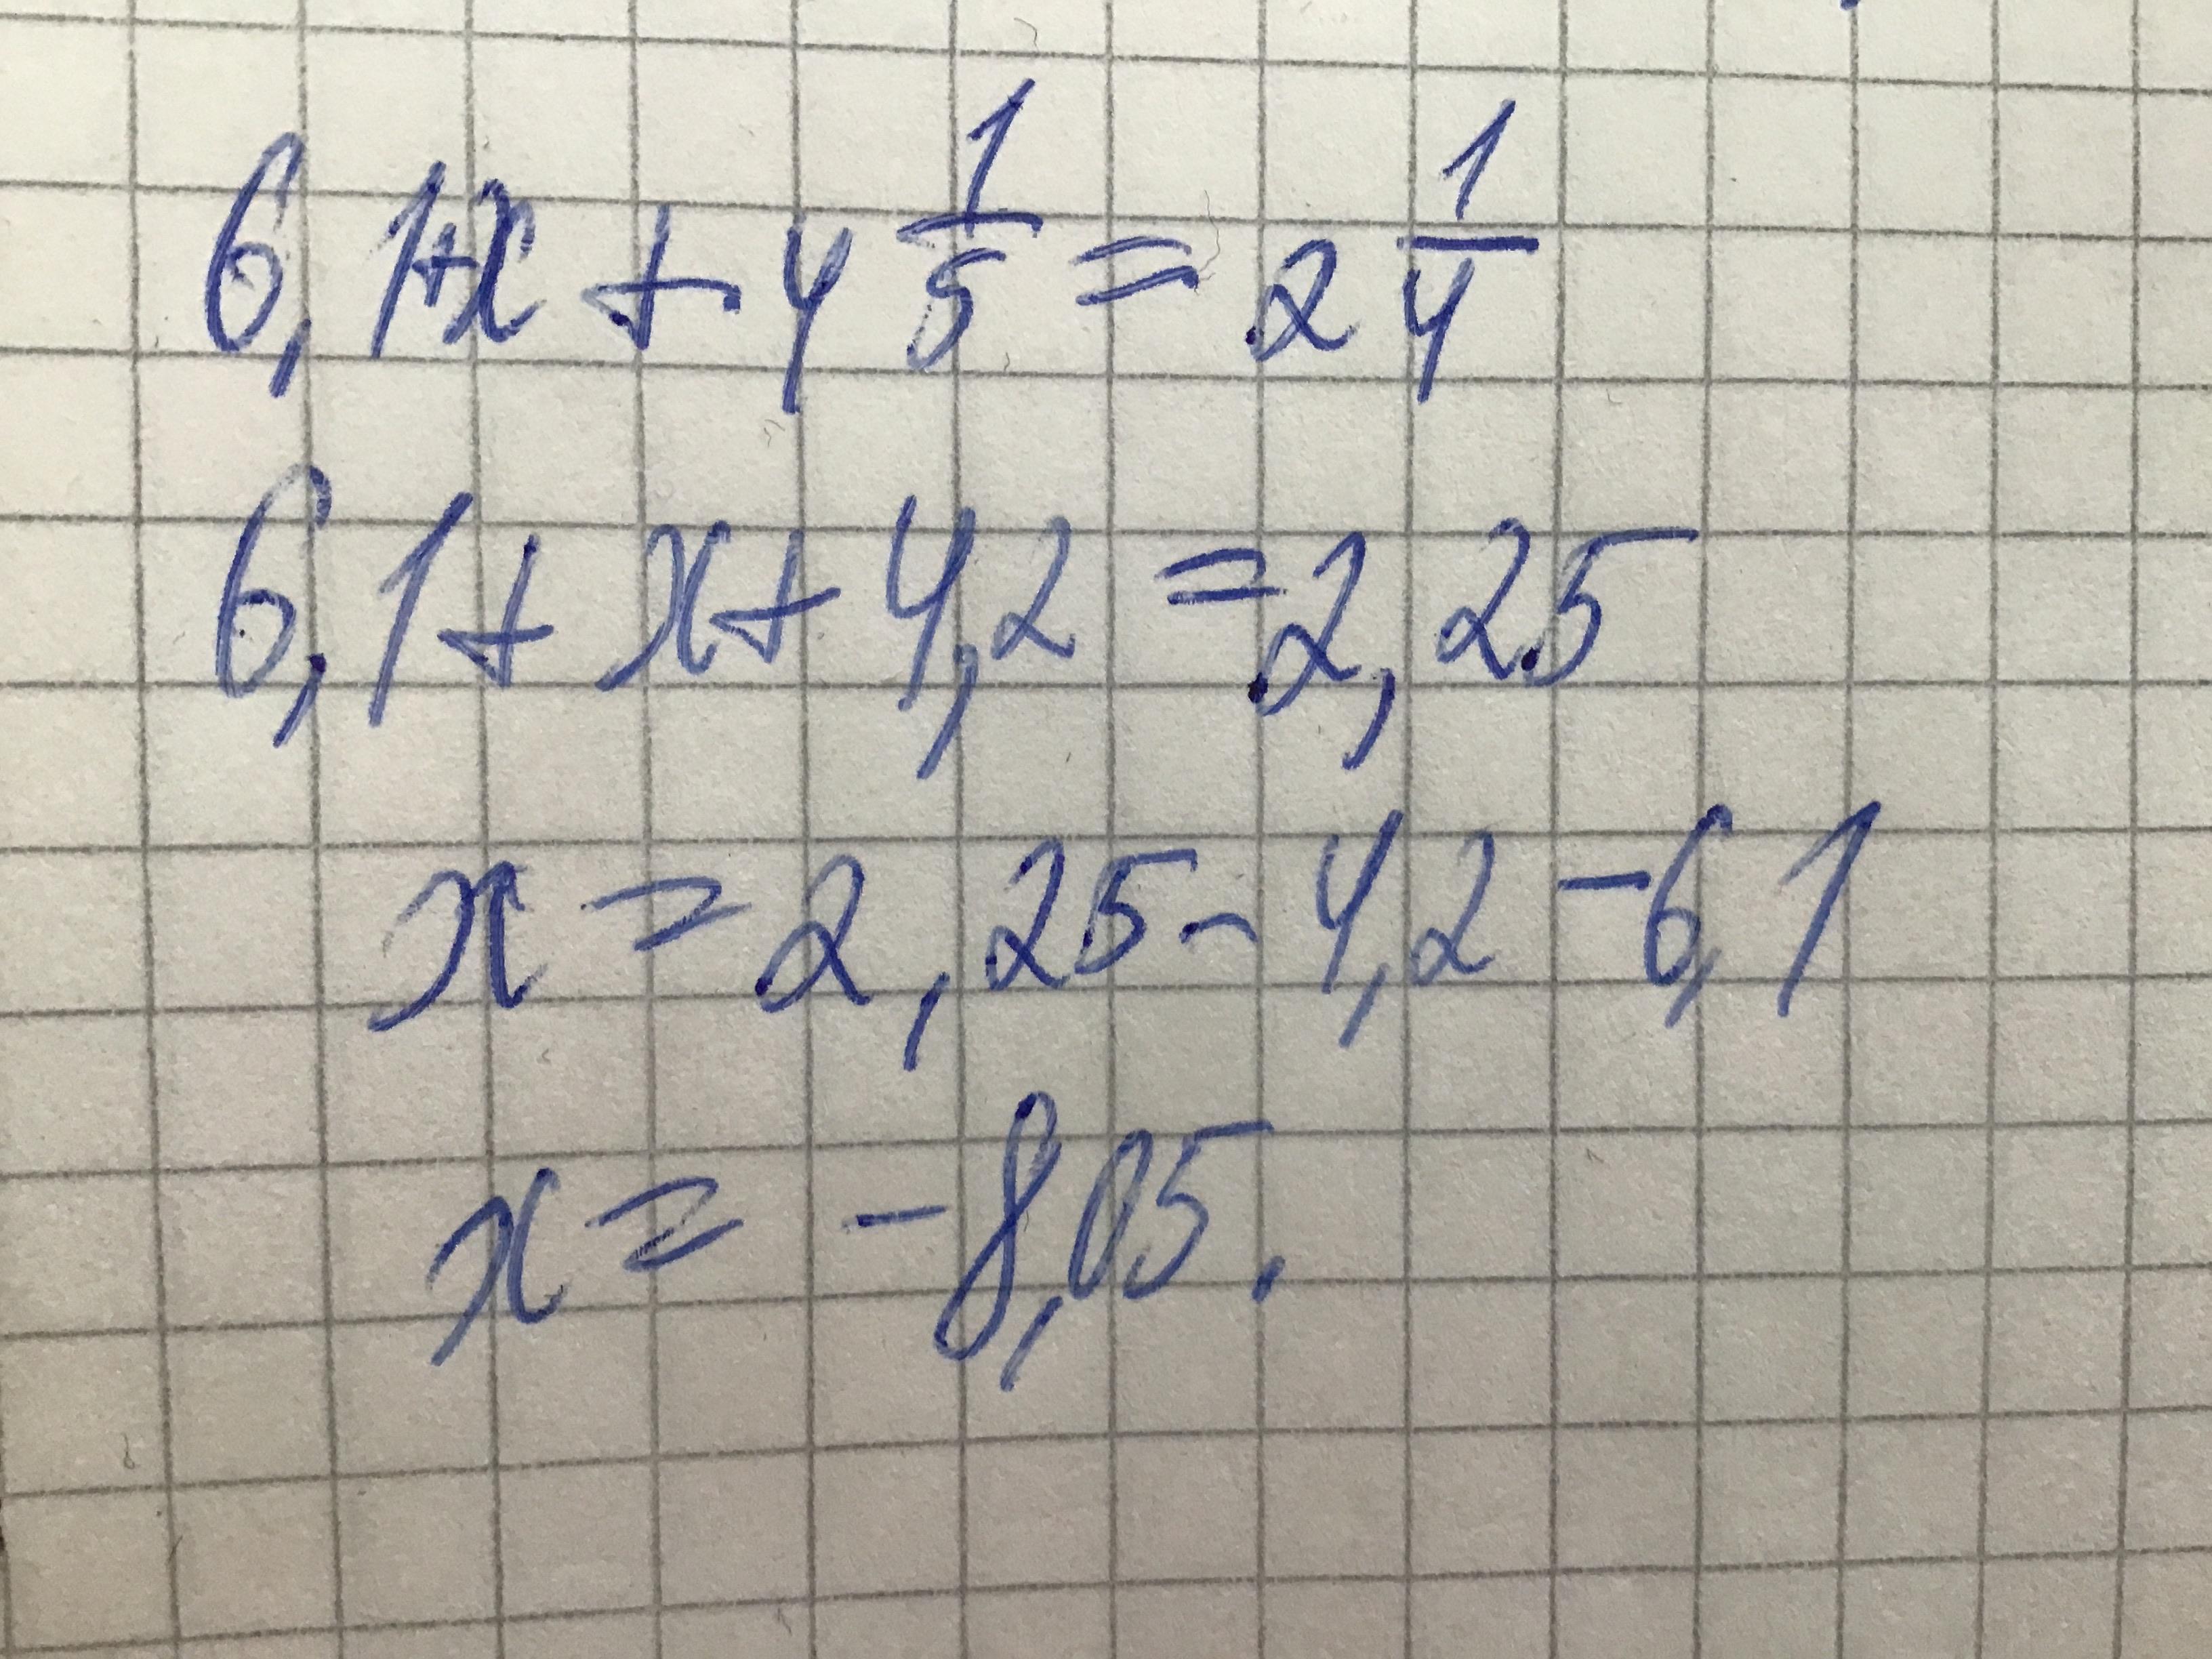 6,1+x + 4 1/5 = 2 1/4
6,1 + x + 4,2 = 2,25
x = 2,25 - 4,2 - 6,1
x = -8,05.